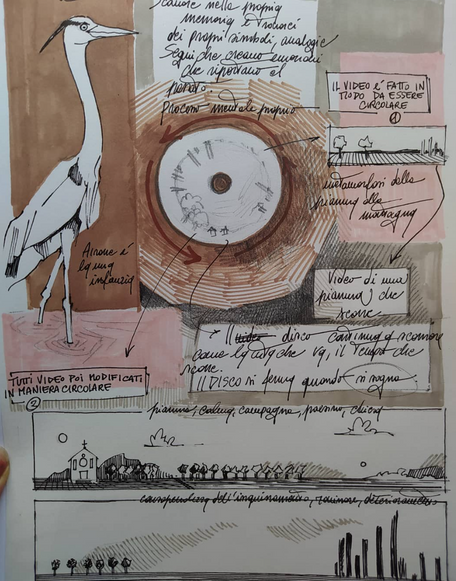 scavare nella propria
memoria e trovarci
dei propri simboli, analogie
Segni che creano emozioni
che riportano al
passato.
Processo mentale proprio
IL VIDEO É FATTO IN
MODO DA ESSERE
CIRCOLARE
1
metamorfosi della
pianura alla
montagna
Airone é
la mia
infanzia
Video di una
pianura che
scorre
Il video disco continua a scorrere
come la vita che va, il tempo che
scorre.
Il DISCO si ferma quando si sogna
TUTTI VIDEO POI MODIFICATI
IN MANIERA CIRCOLARE
2
pianura, calma, campagna, paesino, chiesa
dell'inquinamento, rumore,